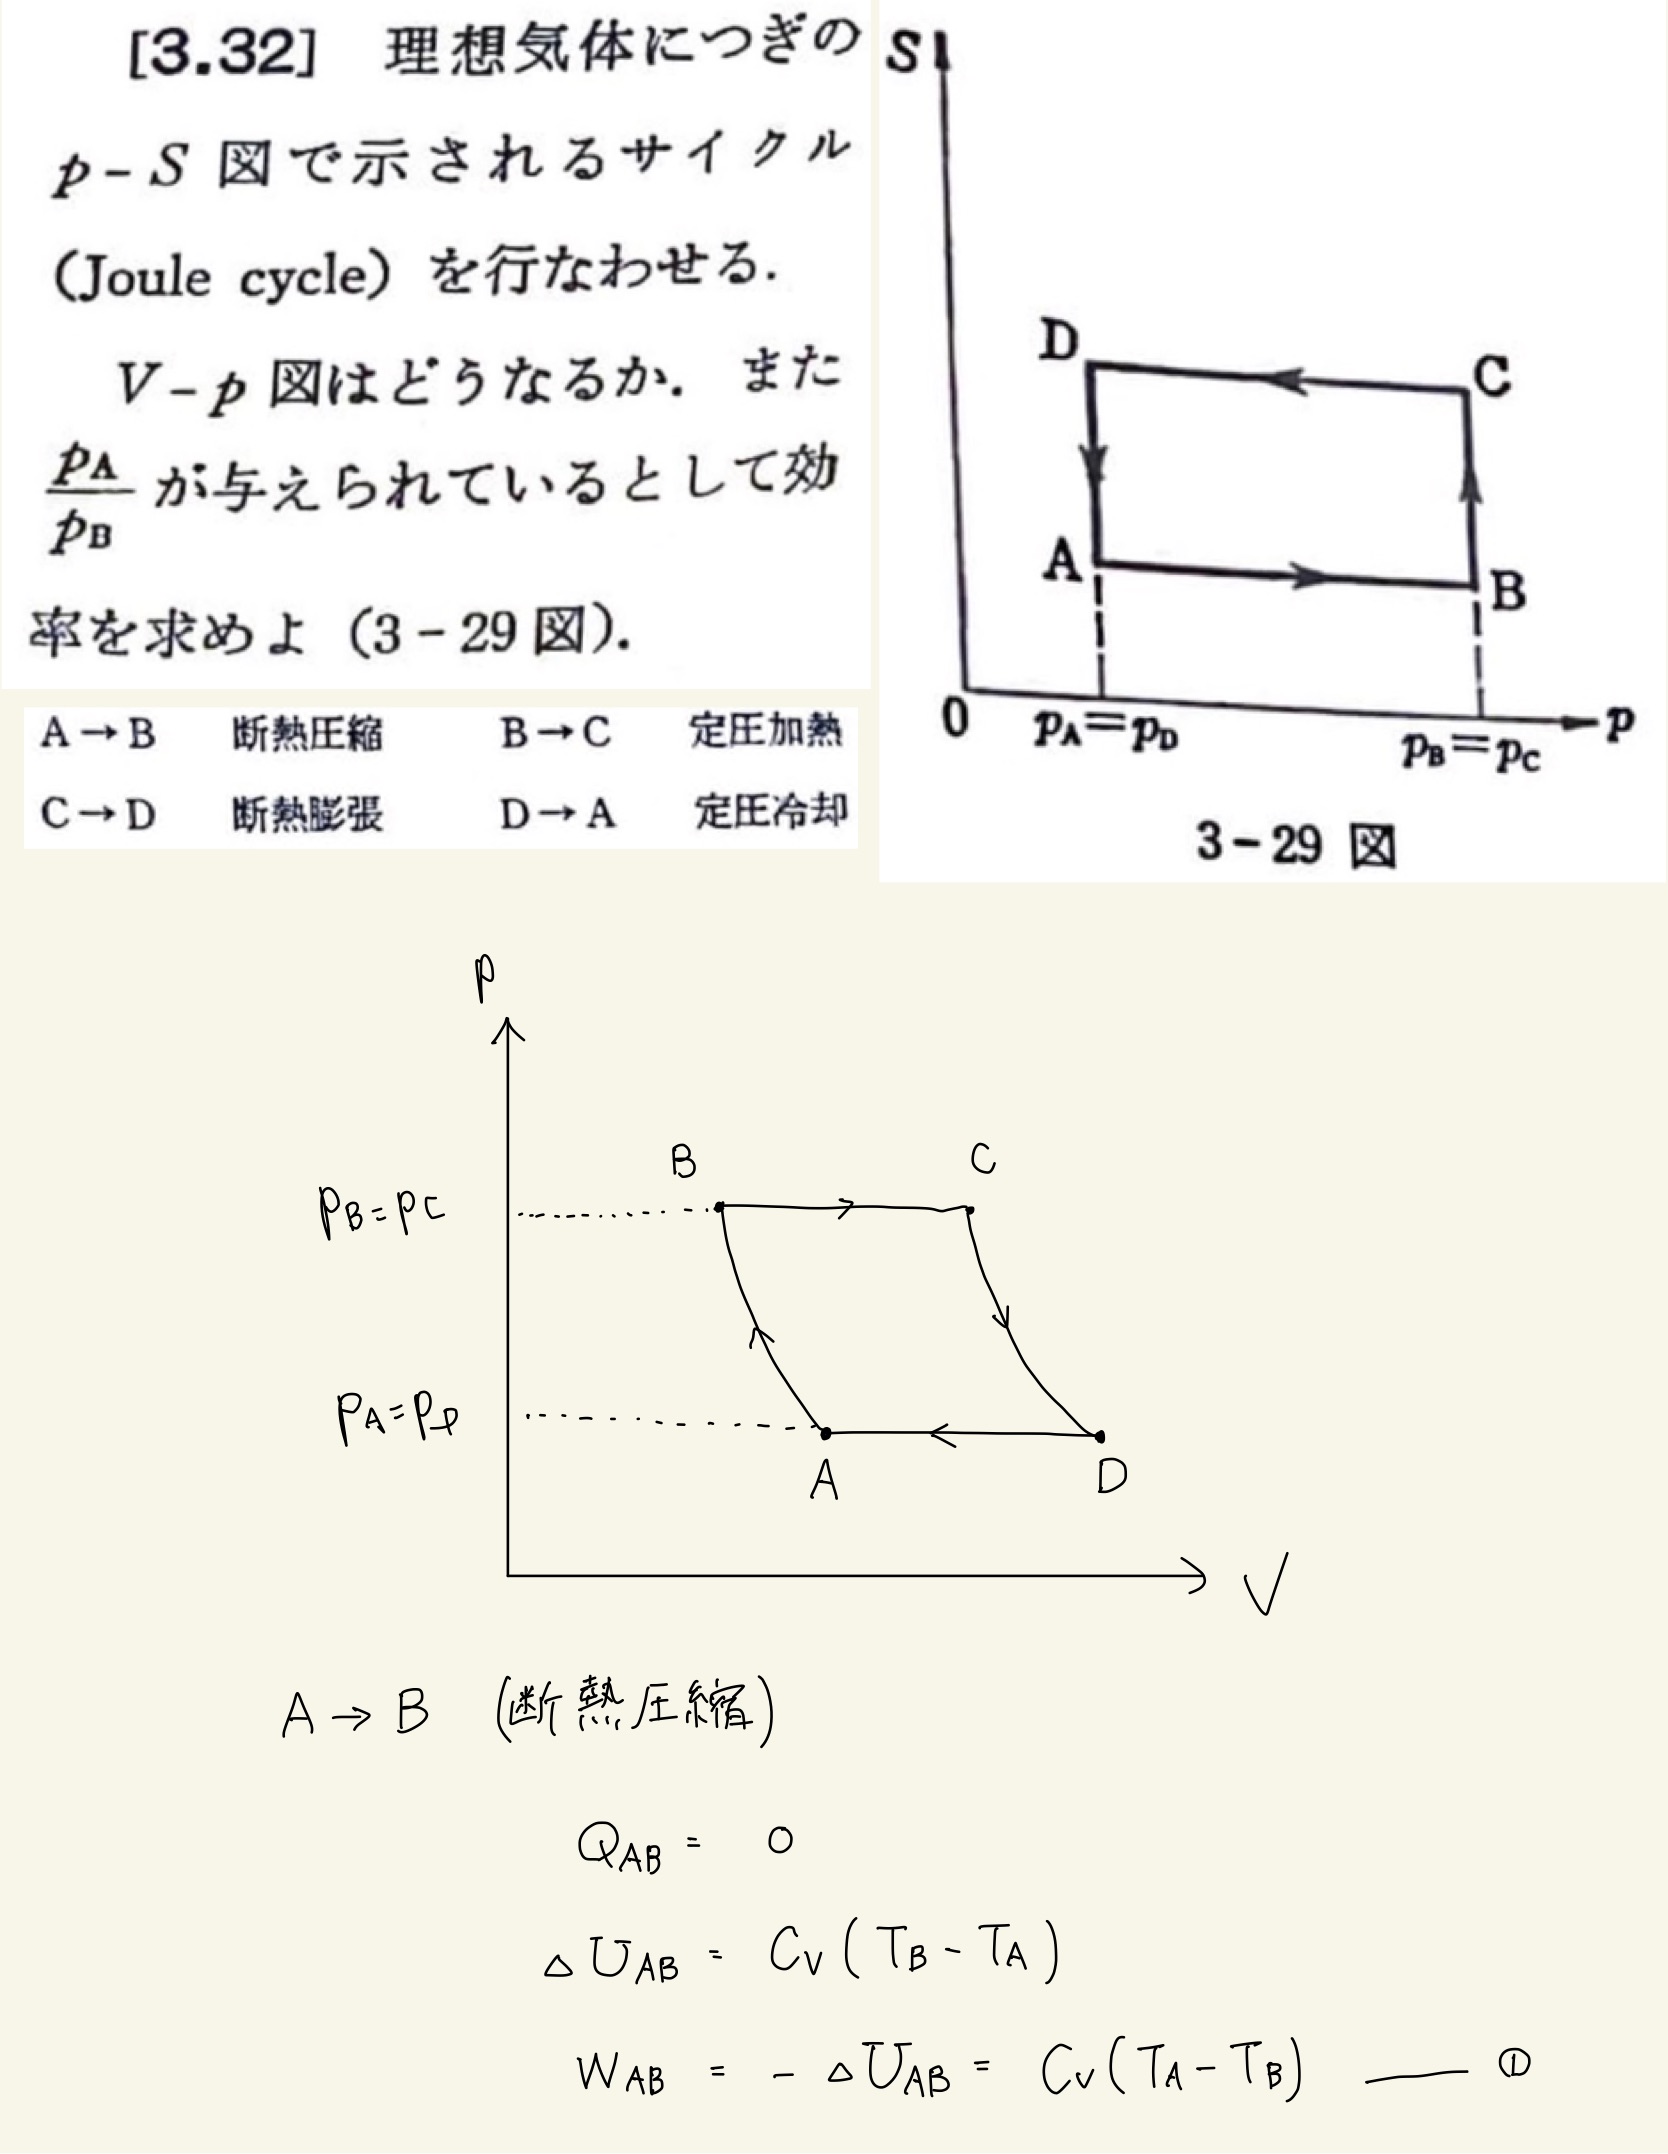 [3.32] 理想気体につぎの
p-S 図で示されるサイクル
(Joule cycle) を行なわせる.
V-p 図はどうなるか. また
pA/pB が与えられているとして効
率を求めよ (3-29図).
A→B 断熱圧縮 B→C 定圧加熱
C→D 断熱膨張 D→A 定圧冷却
S
D
C
A
B
0
pA=pD
pB=pC
p
3-29 図
P
B
C
PB=PC
PA=PD
A
D
V
A→B (断熱圧縮)
QAB = 0
△UAB = CV(TB-TA)
WAB = -△UAB = CV(TA-TB) —— ①